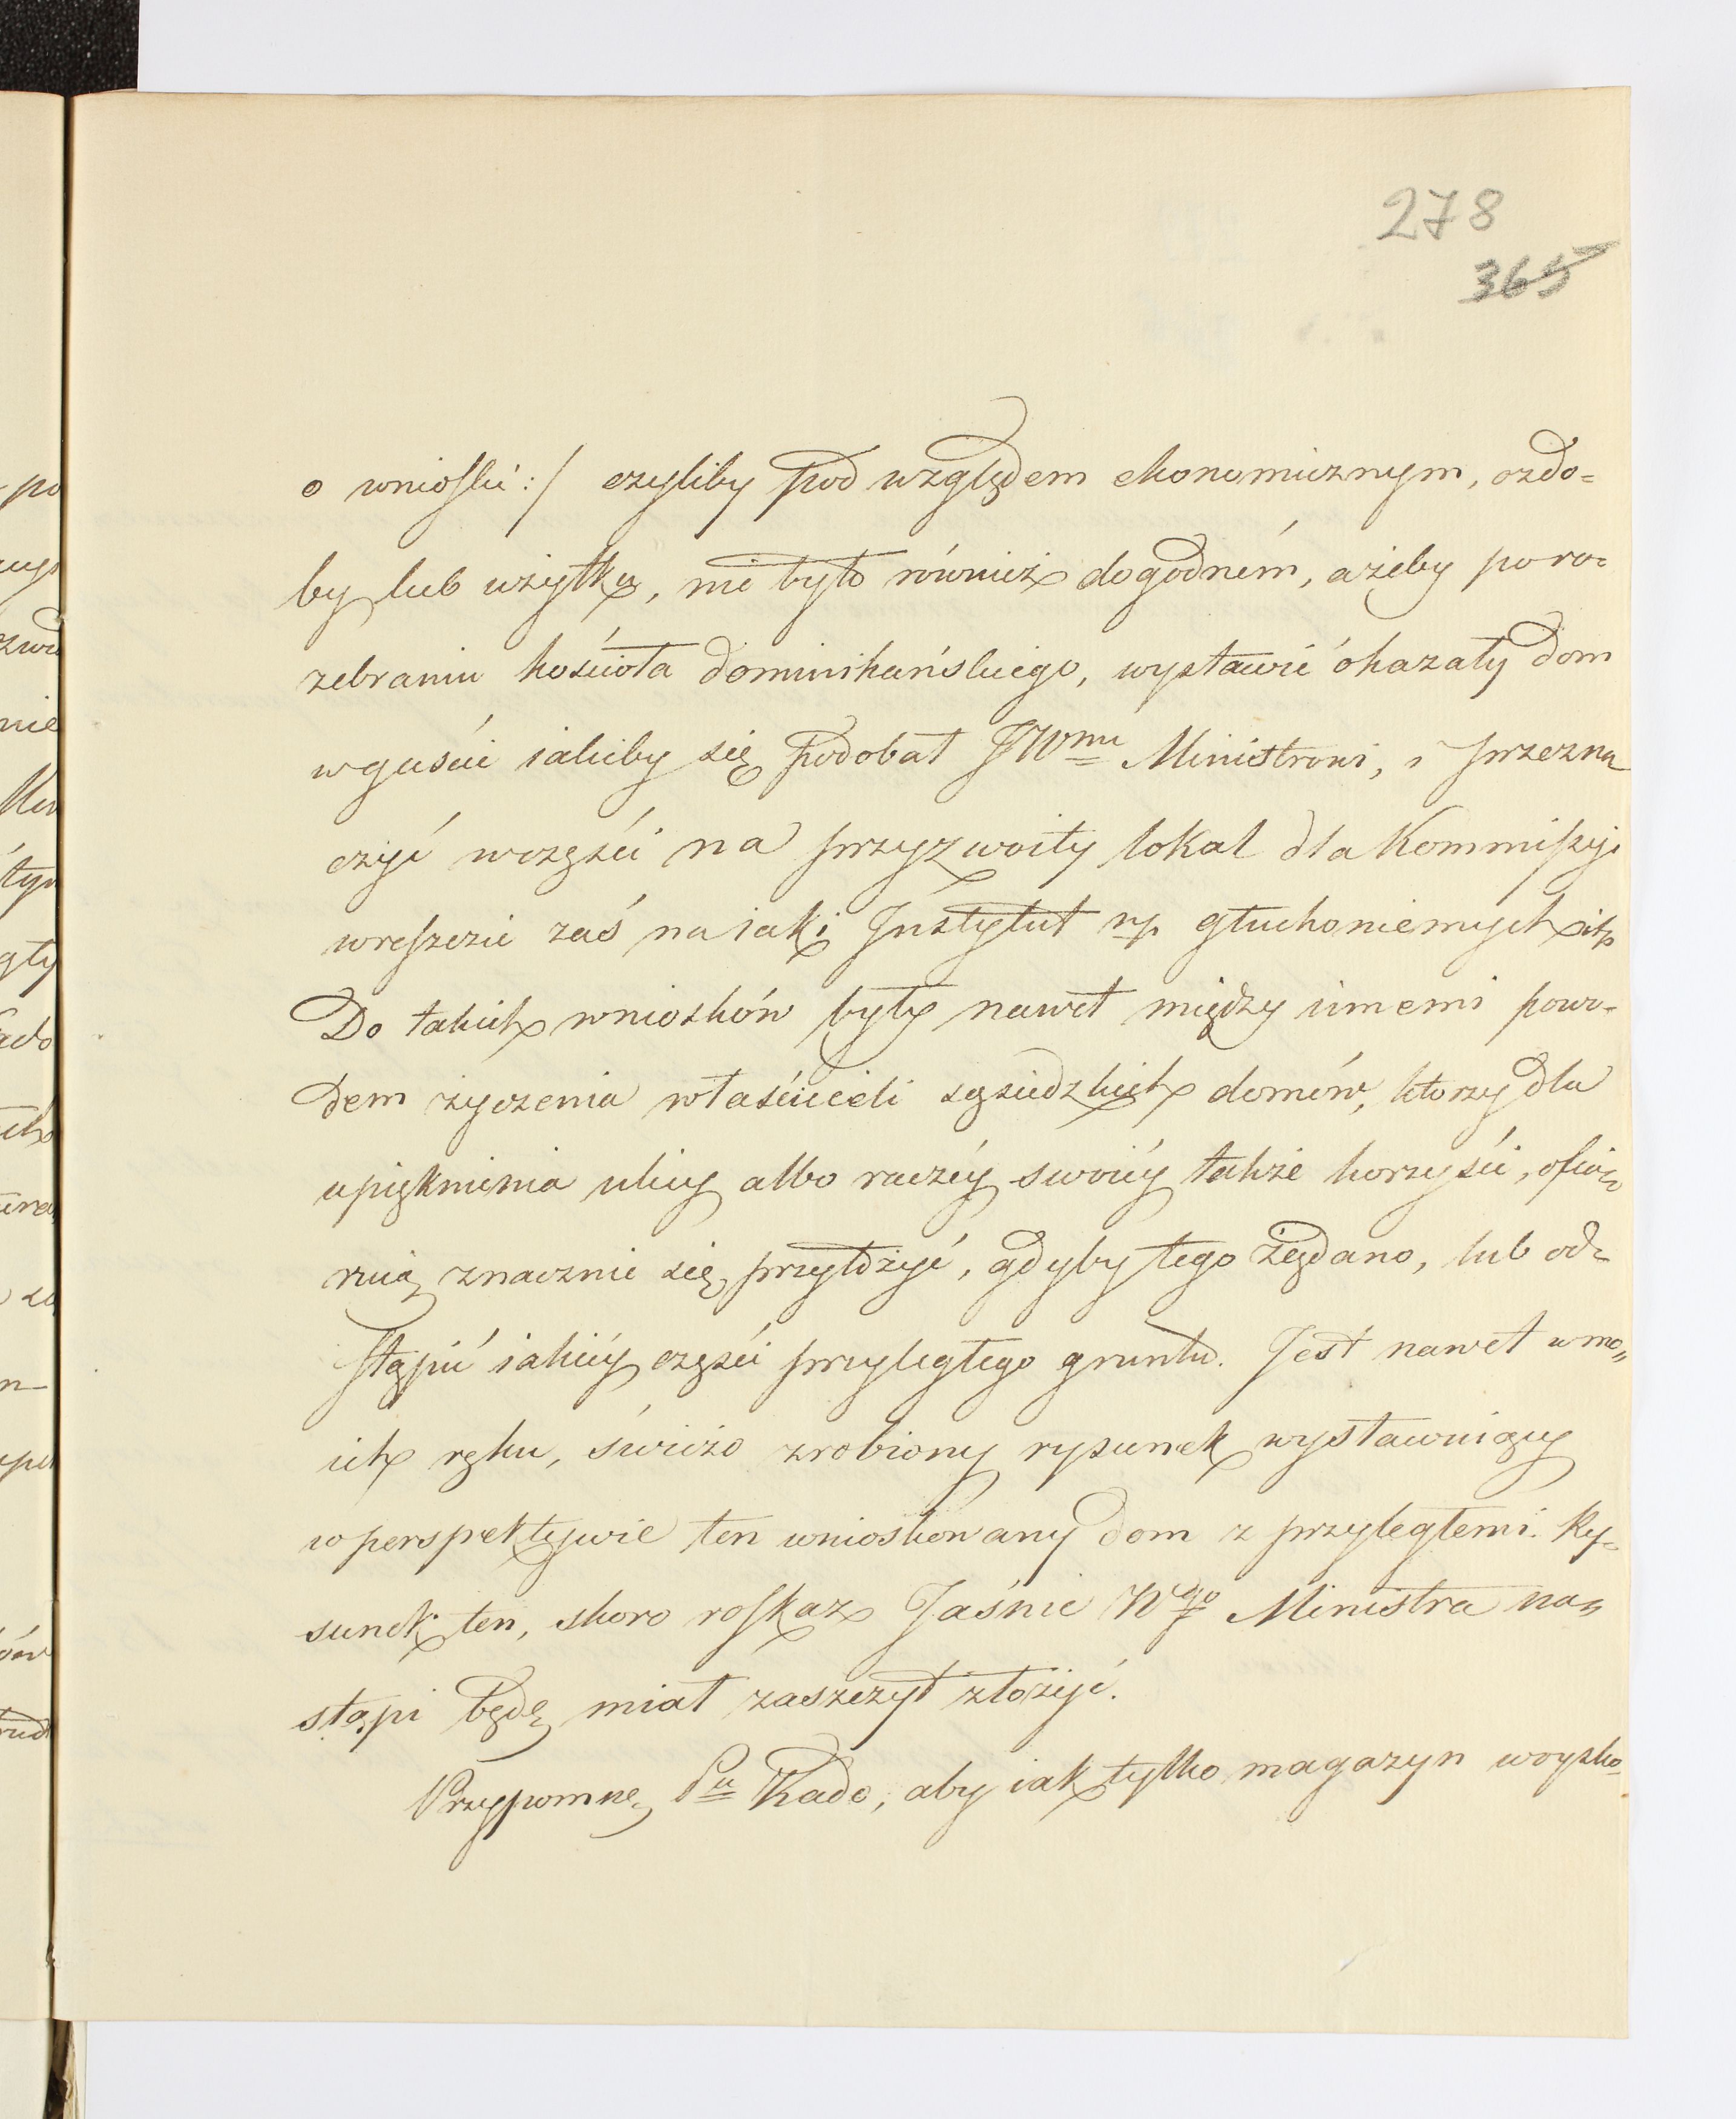 278
365
o wniosku :/ czyliby pod względem ekonomicznym, ozdo=
by lub użytku, nie było również dogodném, ażeby po ro=
zebraniu kościoła dominikańskiego, wystawić okazały dom
w guście iakiby się podobał JWmu Ministrowi, i przezna
czyć w części na przyzwoity lokal dla Kommissyi
w reszcie zaś na iaki Instytut np. głuchoniemych itp
Do takich wniosków były nawet między innemi powo=
dem życzenia właścicieli sąsiedzkich domów, którzy dla
upięknienia ulicy albo raczéy swoiéy także korzyści, ofia=
ruią znacznie się przyłożyć, gdyby tego żądano, lub od=
stąpić iakiéy części przyległego gruntu. Jest nawet w mo„
ich ręku, świéżo zrobiony rysunek wystawuiący
w perspektywie ten wnioskowany dom z przyległemi. Ry=
sunek ten, skoro roskaz Jaśnie Wgo Ministra na=
stąpi będę miał zaszczyt złożyć.
Przypomnę Pu Kado, aby iak tylko magazyn woysko=